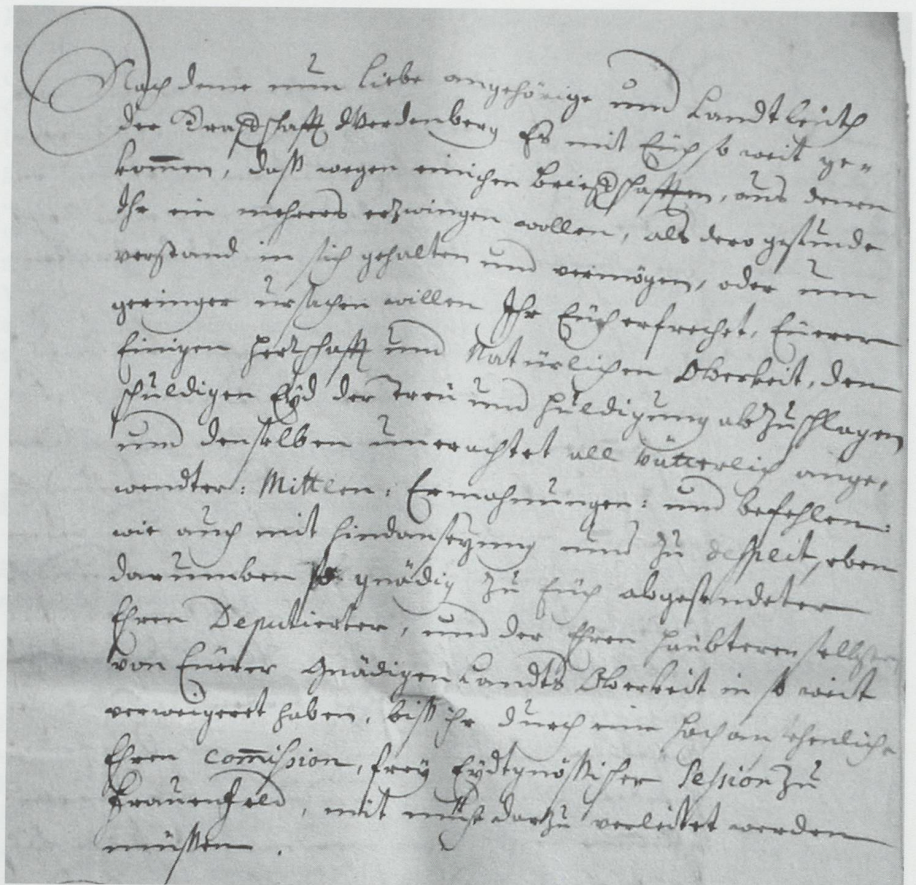 Nach deme nun liebe angehörige und Landtleüth
der Graffschafft Werdenberg Es mit Eüch so weit ge-
kommen, daß wegen einichen brieffschafften, aus denen
Ihr ein mehrers erzwingen wollen, als dero gesunde
verstand in sich gehalten und vermögen, oder um
geringer ursachen willen Ihr Eüch erfrechet, Eüerer
Einigen Herrschafft und Natürlichen Oberkeit, den
schuldigen Eyd der Treü und Huldigung abzuschlagen
und denselben unerachtet all vätterlich ange-
wendter: Mittlen: Ermahnungen: und befehlen:
wie auch mit hindansezung und zu despect, eben
darumben so gnädig zu Eüch abgesendeter
Ehren Deputierter, und der Ehren Haübteren selbsten
von Eüerer Gnädigen Landts Oberkeit in so weit
verweigeret haben, biß ihr durch eine hochansehenliche
Ehren commission, frey Eydtgnößischer Session zu
Frauenfeld, mit mühe darzu verleitet werden
müßen.